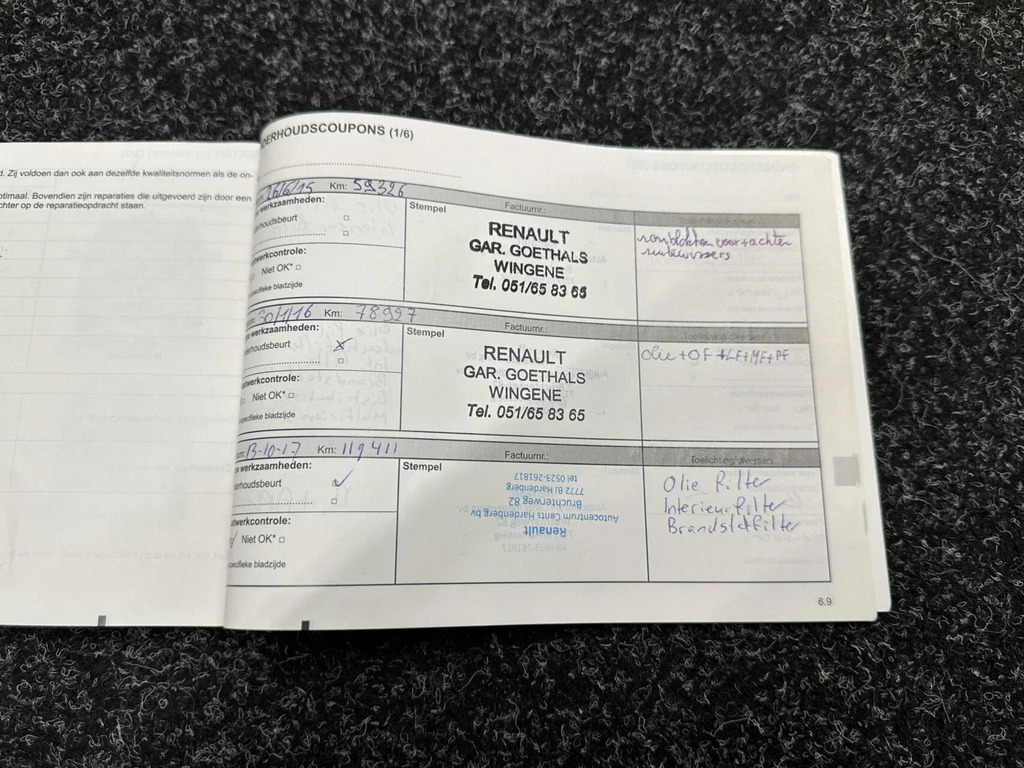 d. Zij voldoen dan ook aan dezelfde kwaliteitsnormen als de on-
ptimaal. Bovendien zijn reparaties die uitgevoerd zijn door een
chter op de reparatieopdracht staan.
DERHOUDSCOUPONS (1/6)
26/6/15 Km: 59326
Factuurnr.:
werkzaamheden:
Stempel
erhoudsbeurt
RENAULT
GAR. GOETHALS
WINGENE
Tel. 051/65 83 65
voor+achter
ruitenwissers
twerkcontrole:
Niet OK*
specifieke bladzijde
30/1/16 Km: 78927
Factuurnr.:
werkzaamheden:
Stempel
erhoudsbeurt X
RENAULT
GAR. GOETHALS
WINGENE
Tel. 051/65 83 65
Olie+OF+LF+MF+PF
twerkcontrole:
Niet OK*
specifieke bladzijde
13-10-17 Km: 119411
Factuurnr.:
Toelichting/diversen
werkzaamheden:
Stempel
erhoudsbeurt
Renault
Autocentrum Cents Hardenberg bv
Bruchterweg 82
7772 BJ Hardenberg
tel 0523-261817
Olie Filter
Interieurfilter
Brandstoffilter
twerkcontrole:
Niet OK*
specifieke bladzijde
6.9